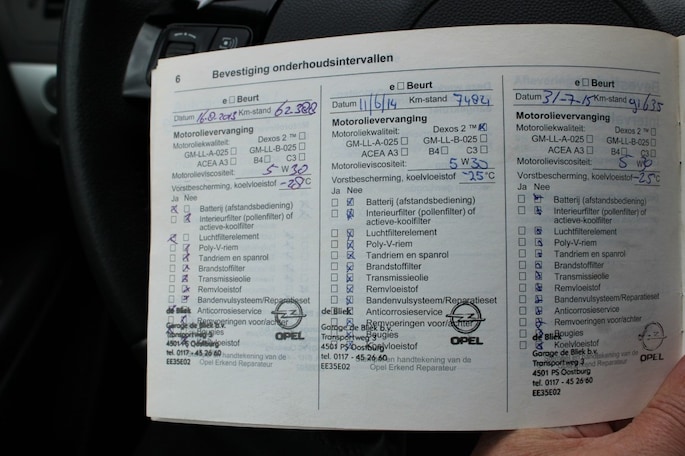 6 Bevestiging onderhoudsintervallen
e □ Beurt
Datum 16.8.2013 Km-stand
Motorolievervanging
Motoroliekwaliteit: Dexos 2 ™ □
GM-LL-A-025 □ GM-LL-B-025 □
ACEA A3 □ B4 □ C3 □
Motorolieviscositeit: 5 W 30
Vorstbescherming, koelvloeistof -28 °C
Ja Nee
Batterij (afstandsbediening)
Interieurfilter (pollenfilter) of
actieve-koolfilter
Luchtfilterelement
Poly-V-riem
Tandriem en spanrol
Brandstoffilter
Transmissieolie
Remvloeistof
Bandenvulsysteem/Reparatieset
Anticorrosieservice
Remvoeringen voor/achter
Bougies
Koelvloeistof
de Bliek
Garage de Bliek b.v.
Transportweg 3
4501 PS Oostburg
tel. 0117 - 45 26 60
EE35E02
OPEL
handtekening van de
Opel Erkend Reparateur
e □ Beurt
Datum 11/6/14 Km-stand 74821
Motorolievervanging
Motoroliekwaliteit: Dexos 2 ™ ☒
GM-LL-A-025 □ GM-LL-B-025 □
ACEA A3 □ B4 □ C3 □
Motorolieviscositeit: 5 W 30
Vorstbescherming, koelvloeistof -25 °C
Ja Nee
Batterij (afstandsbediening)
Interieurfilter (pollenfilter) of
actieve-koolfilter
Luchtfilterelement
Poly-V-riem
Tandriem en spanrol
Brandstoffilter
Transmissieolie
Remvloeistof
Bandenvulsysteem/Reparatieset
Anticorrosieservice
Remvoeringen voor/achter
Bougies
Koelvloeistof
de Bliek
Garage de Bliek b.v.
Transportweg 3
4501 PS Oostburg
tel. 0117 - 45 26 60
EE35E02
OPEL
en handtekening van de
Opel Erkend Reparateur
e □ Beurt
Datum 31-7-15 Km-stand 91635
Motorolievervanging
Motoroliekwaliteit: Dexos 2 ™ □
GM-LL-A-025 □ GM-LL-B-025 □
ACEA A3 □ B4 □ C3 □
Motorolieviscositeit: 5 W 30
Vorstbescherming, koelvloeistof -25 °C
Ja Nee
Batterij (afstandsbediening)
Interieurfilter (pollenfilter) of
actieve-koolfilter
Luchtfilterelement
Poly-V-riem
Tandriem en spanrol
Brandstoffilter
Transmissieolie
Remvloeistof
Bandenvulsysteem/Reparatieset
Anticorrosieservice
Remvoeringen voor/achter
Bougies
Koelvloeistof
Garage de Bliek b.v.
Transportweg 3
4501 PS Oostburg
tel. 0117 - 45 26 60
EE35E02
OPEL
handtekening van de
Erkend Reparateur